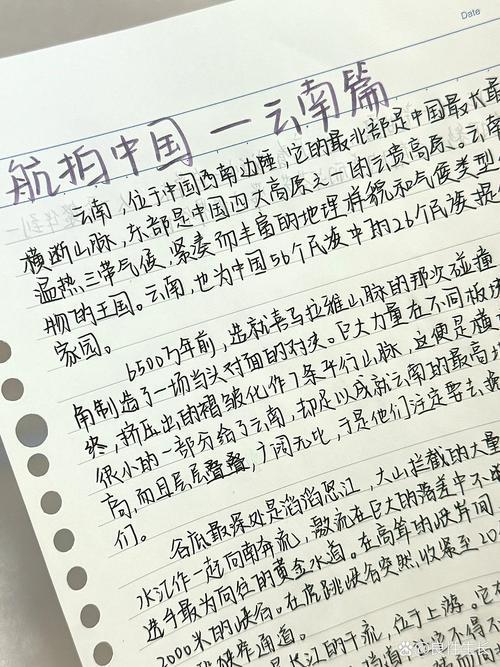 Date
航拍中国 — 云南篇
云南，位于中国西南边陲，它的最北部是中国最长最
横断山脉，东部是中国四大高原之一的云贵高原。云南
温热三带气候，紧凑而丰富的地理样貌和气候类型
物的王国。云南，也为中国56个民族中的26个民族提
家园。
6500万年前，造就喜马拉雅山脉的那次碰撞
角制造了一场当头对面的对决。巨大力量在不同板块
终，挤压出的褶皱化作7条平行山脉，这便是横
很小的一部分给了云南，却足以成就云南的最高
向，而且层层叠叠，广阔无比，于是他们注定要去
们。
谷底最深处是滔滔怒江，大山拦截的大量
水汇作一起向南奔流，激流在巨大的落差中不
选手最为向往的黄金水道。在高耸的峡岸间
2000米的峡谷。在虎跳峡谷突然收窄至20
跳峡库通道。
是长江的干流，位于上游。它
@良性生长